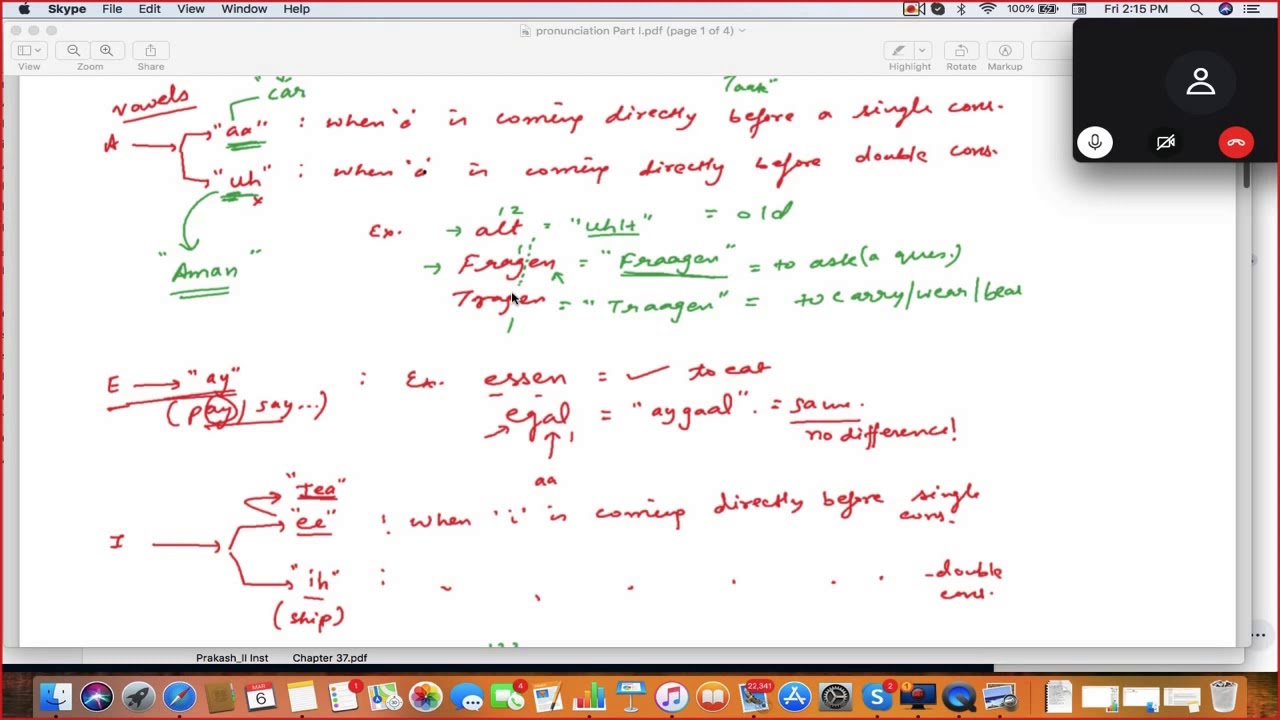 Skype File Edit View Window Help 100% Fri 2:15 PM
pronunciation Part I.pdf (page 1 of 4)
View Zoom Share Highlight Rotate Markup
"car
Task"
vowels
A → "aa" : when 'a' is coming directly before a single cons.
"uh" : when 'a' is coming directly before double cons.
x
"Aman"
1 2
Ex. → alt = "uhlt" = old
1
→ Fragen = "Fraagen" = to ask (a ques.)
Tragen = "Traagen" = to carry/wear/bear
1
E → "ay" : Ex. essen = ✓ to eat
(pay/say...)
egal = "aygaal". = same.
1
no difference!
aa
"Tea"
I → "ee" : when 'i' is coming directly before single cons.
"ih" : - double cons.
(ship)
1 2 3
Prakash_II Inst Chapter 37.pdf
MAR
6
1
4
22,341
2
1